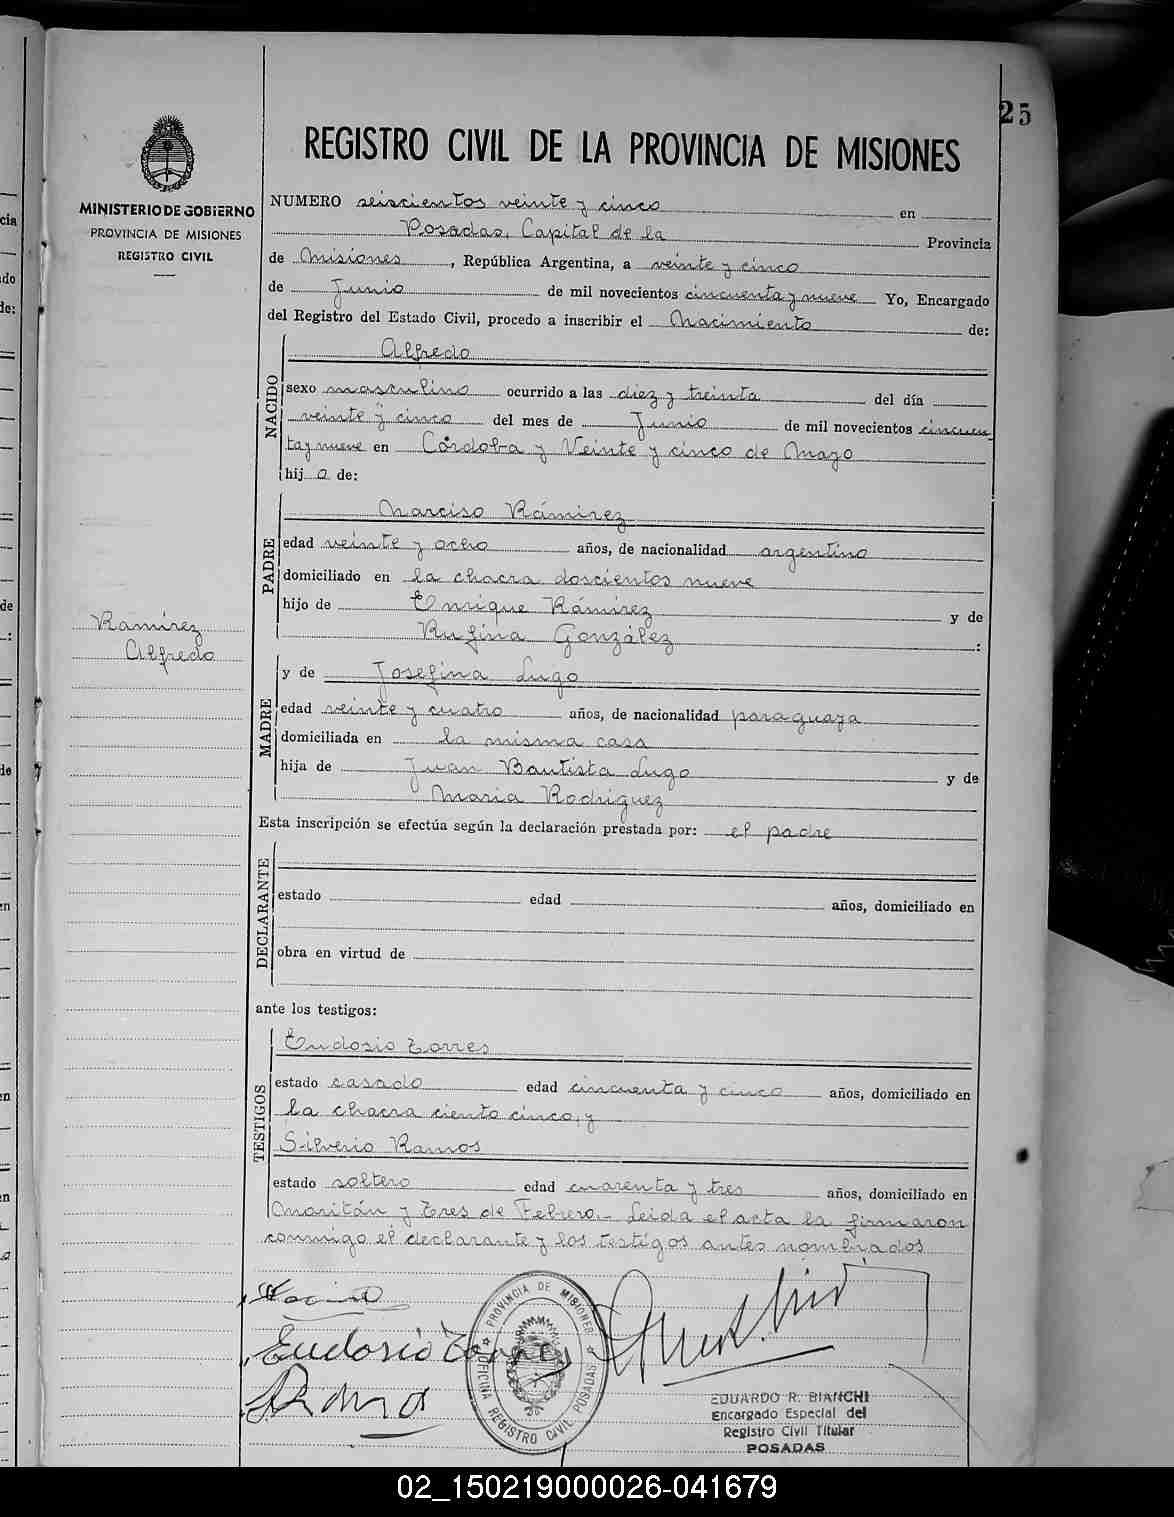 25
REGISTRO CIVIL DE LA PROVINCIA DE MISIONES
MINISTERIO DE GOBIERNO
PROVINCIA DE MISIONES
REGISTRO CIVIL
NUMERO seiscientos veinte y cinco en
Posadas, Capital de la Provincia
de Misiones, República Argentina, a veinte y cinco
de Junio de mil novecientos cincuenta y nueve Yo, Encargado
del Registro del Estado Civil, procedo a inscribir el Nacimiento de:
NACIDO
Alfredo
sexo masculino ocurrido a las diez y treinta del día
veinte y cinco del mes de Junio de mil novecientos cincuen
ta y nueve en Córdoba y Veinte y cinco de Mayo
hij o de:
PADRE
Narciso Rámirez
edad veinte y ocho años, de nacionalidad argentino
domiciliado en la chacra doscientos nueve
hijo de Enrique Rámirez y de
Rufina González :
Ramirez
Alfredo
MADRE
y de Josefina Lugo
edad veinte y cuatro años, de nacionalidad paraguaya
domiciliada en la misma casa
hija de Juan Bautista Lugo y de
Maria Rodriguez
Esta inscripción se efectúa según la declaración prestada por: el padre
DECLARANTE
estado edad años, domiciliado en
obra en virtud de
ante los testigos:
TESTIGOS
Eudosio Torres
estado casado edad cincuenta y cinco años, domiciliado en
la chacra ciento cinco, y
Silverio Ramos
estado soltero edad cuarenta y tres años, domiciliado en
Maritán y Tres de Febrero.- Leida el acta la firmaron
conmigo el declarante y los testigos antes nombrados
Eudosio Torres
PROVINCIA DE MISIONES
OFICINA REGISTRO CIVIL POSADAS
EDUARDO R. BIANCHI
Encargado Especial del
Registro Civil Titular
POSADAS
02_150219000026-041679